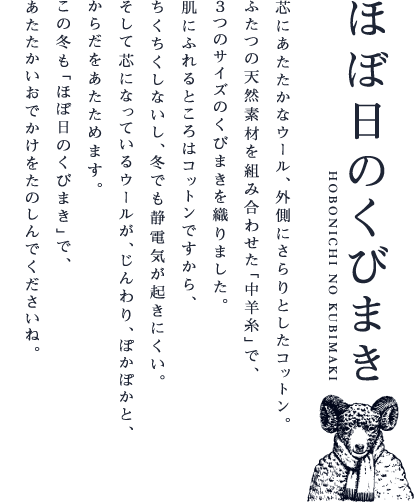 ほぼ日のくびまき
HOBONICHI NO KUBIMAKI
芯にあたたかなウール、外側にさらりとしたコットン。
ふたつの天然素材を組み合わせた「中羊糸」で、
３つのサイズのくびまきを織りました。
肌にふれるところはコットンですから、
ちくちくしないし、冬でも静電気が起きにくい。
そして芯になっているウールが、じんわり、ぽかぽかと、
からだをあたためます。
この冬も「ほぼ日のくびまき」で、
あたたかいおでかけをたのしんでくださいね。